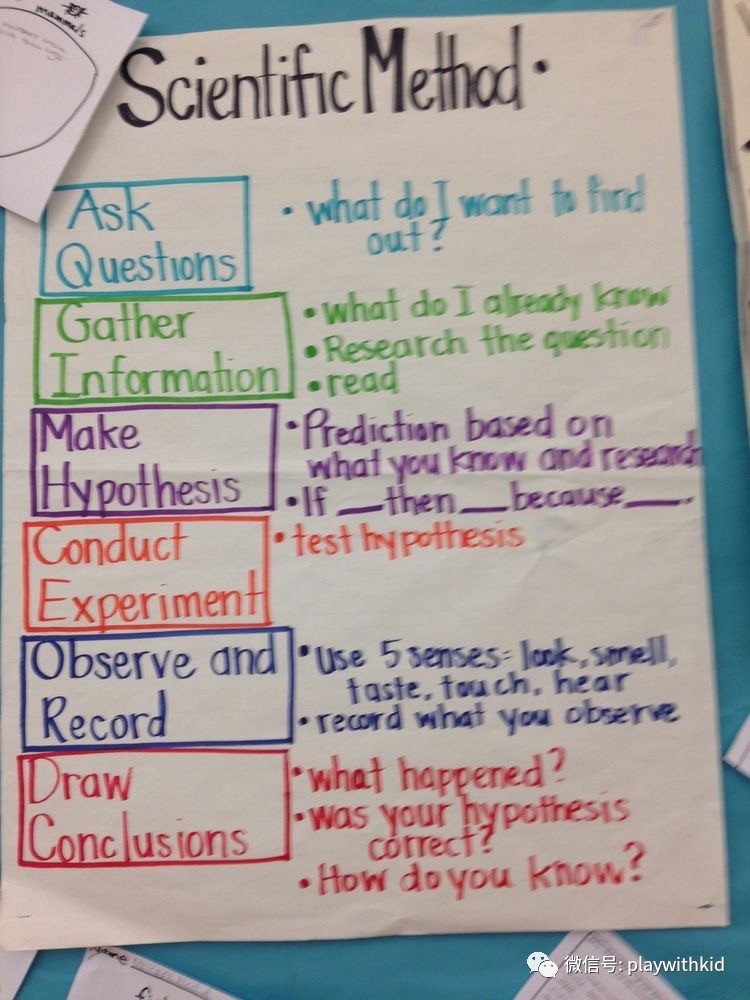 mammals
Scientific Method •
Ask
Questions
• what do I want to find
out?
Gather
Information
• what do I already know
• Research the question
• read
Make
Hypothesis
• Prediction based on
what you know and research
• If __ then __ because __.
Conduct
Experiment
• test hypothesis
Observe and
Record
• use 5 senses = look, smell,
taste, touch, hear
• record what you observe
Draw
Conclusions
• what happened?
• Was your hypothesis
correct?
• How do you know?
Name
微信号: playwithkid